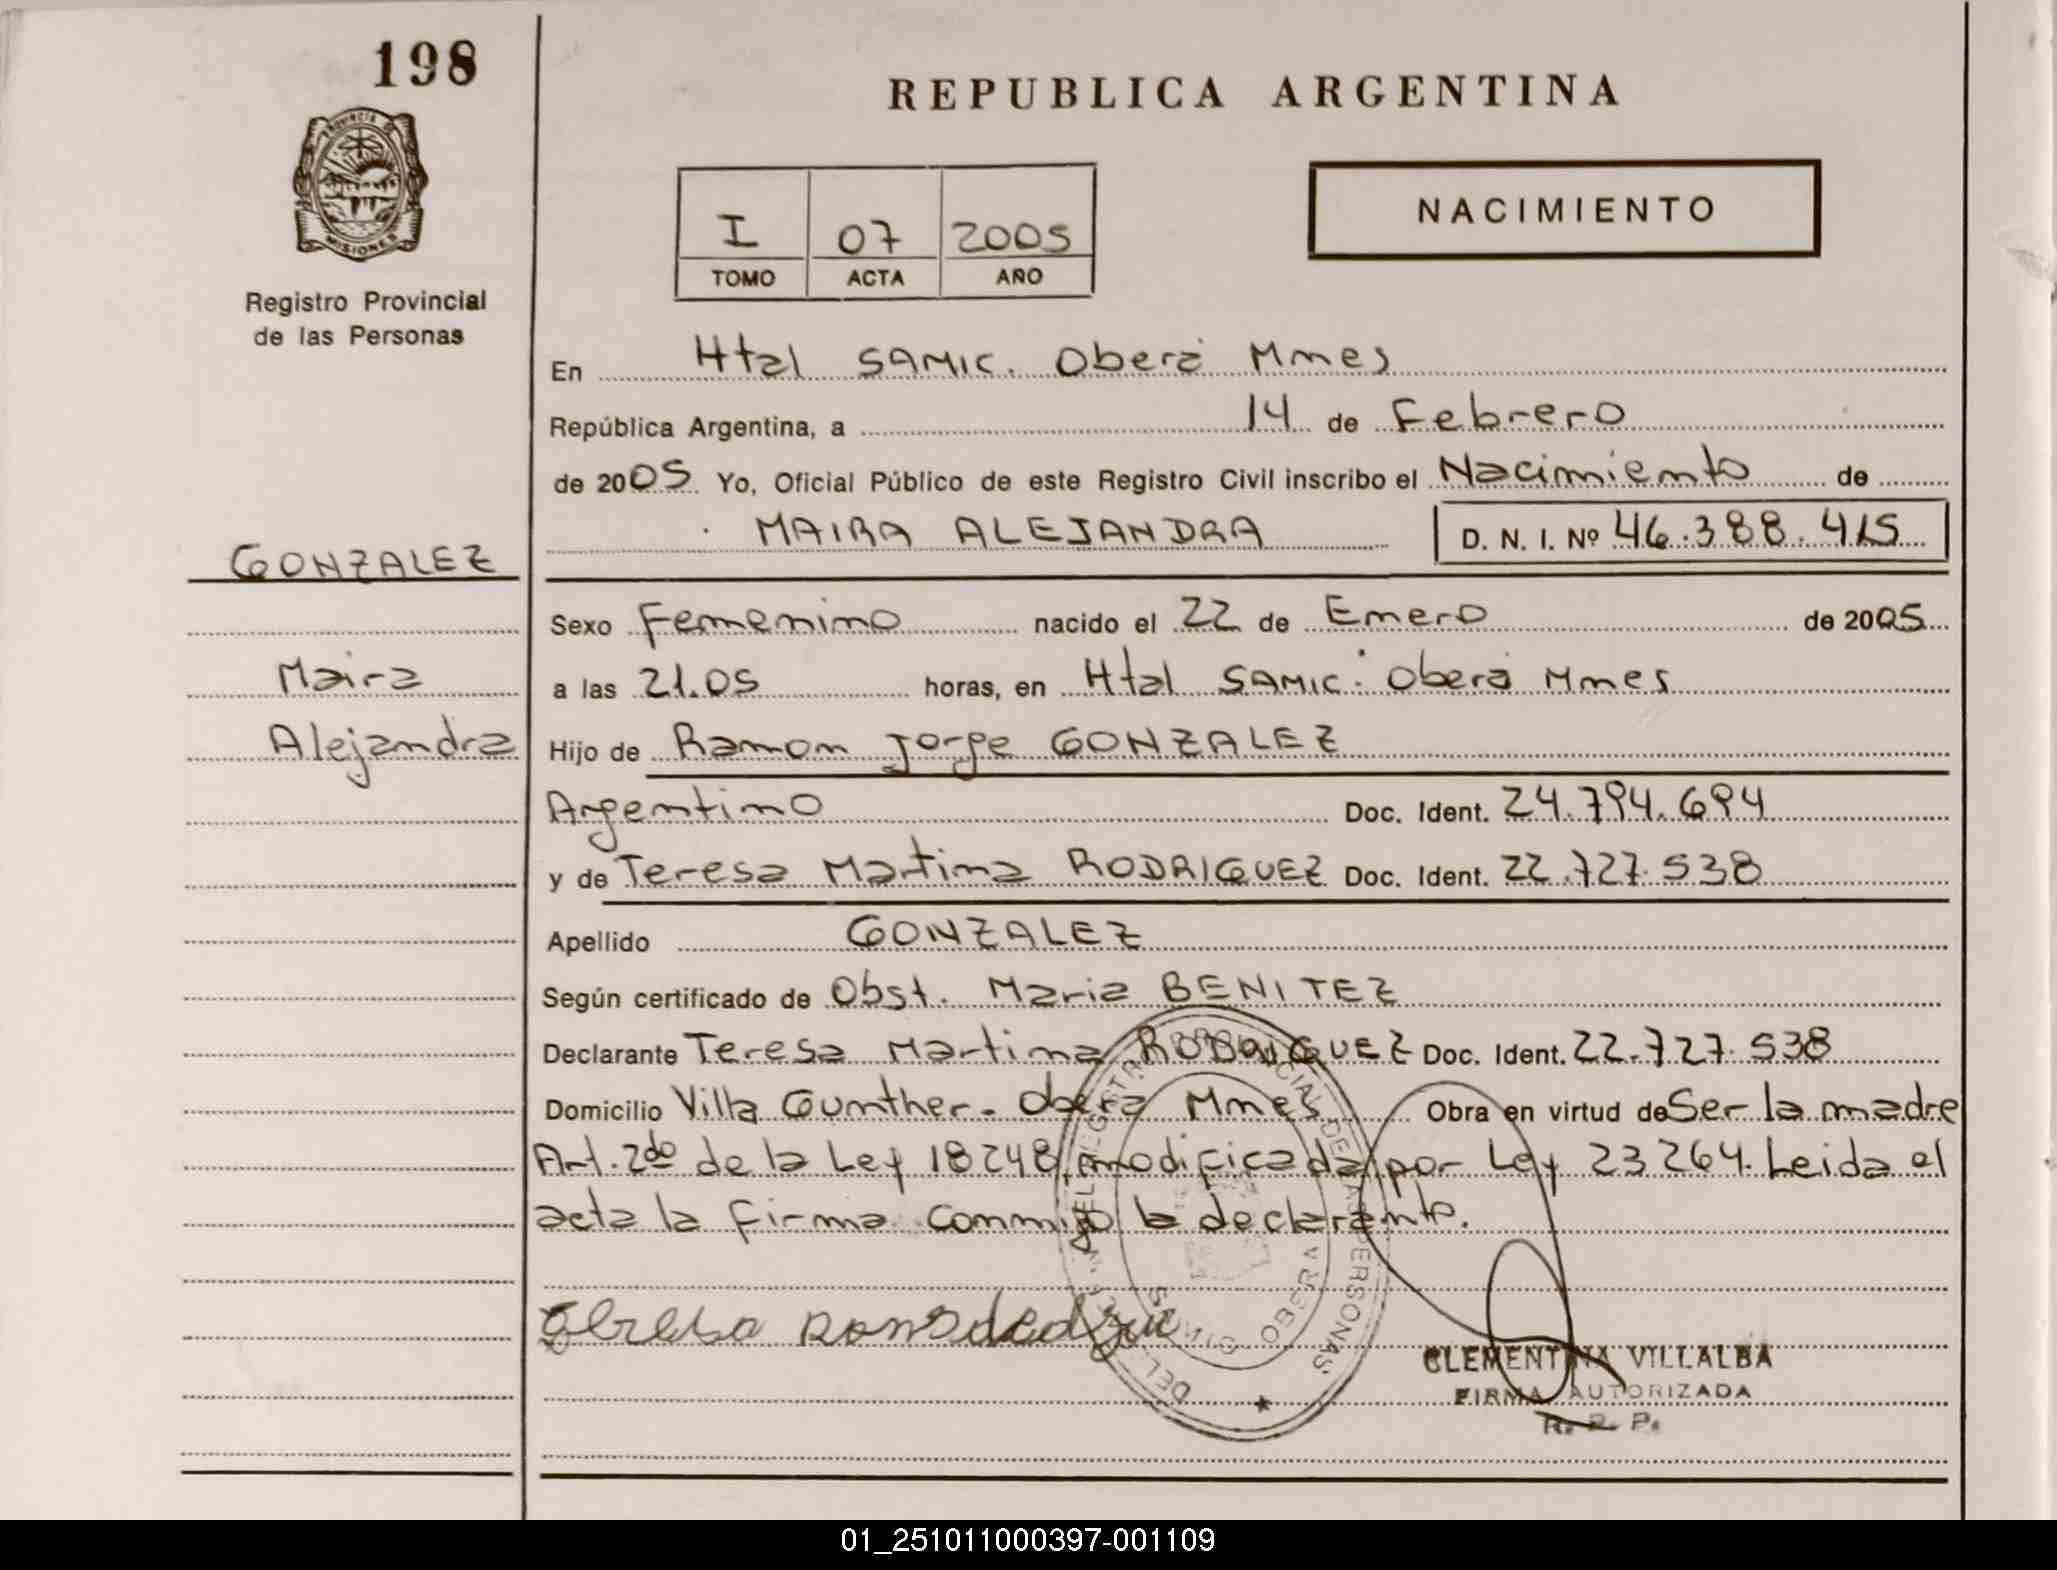 198
REPUBLICA ARGENTINA
PROVINCIA DE
MISIONES
Registro Provincial
de las Personas
I 07 2005
TOMO ACTA AÑO
NACIMIENTO
En Htal SAMIC. Oberá Mnes
República Argentina, a 14 de Febrero
de 2005 Yo, Oficial Público de este Registro Civil inscribo el Nacimiento de
MAIRA ALEJANDRA D. N. I. Nº 46.388.415
GONZALEZ
Sexo Femenino nacido el 22 de Enero de 2005
Maira
a las 21.05 horas, en Htal SAMIC. Oberá Mnes
Alejandra
Hijo de Ramon Jorge GONZALEZ
Argentino Doc. Ident. 24.794.694
y de Teresa Martina RODRIGUEZ Doc. Ident. 22.727.538
Apellido GONZALEZ
Según certificado de Obst. Maria BENITEZ
Declarante Teresa Martina RODRIGUEZ Doc. Ident. 22.727.538
Domicilio Villa Gunther - Oberá Mnes Obra en virtud de Ser la madre
Art. 2do de la Ley 18248, modificada por Ley 23264. Leida el
acta la firma conmigo la declarante.
OBERA
MISIONES
CLEMENTINA VILLALBA
FIRMA AUTORIZADA
R. P. P.
01_251011000397-001109